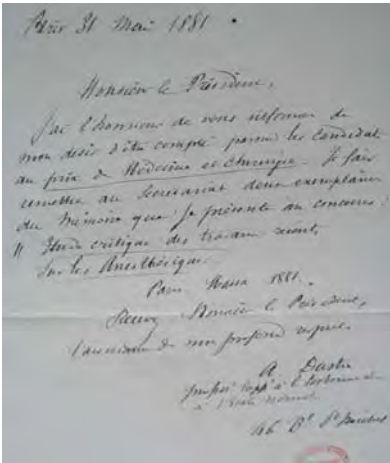 Paris 31 Mai 1881.
Monsieur le Président,
J'ai l'honneur de vous informer de
mon désir d'être compté parmi les candidats
au prix de Médecine et Chirurgie. Je fais
remettre au Secrétariat deux exemplaires
du Mémoire que je présente au concours :
" Etude critique des travaux récents
sur les Anesthésiques.
Paris 1881.
Monsieur le Président,
l'assurance de mon profond respect.
A Dastre
à l'Ecole normale